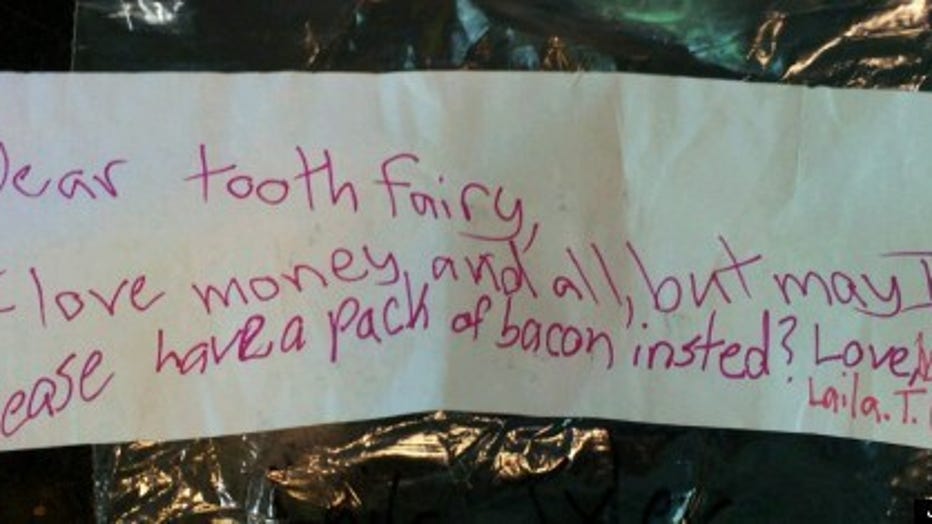 Dear tooth fairy,
I love money, and all, but may I
please have a pack of bacon insted? Love,
Laila. T.